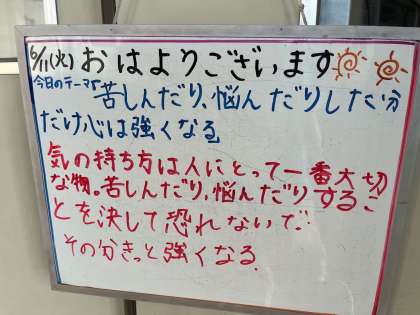 6/11(火) おはようございます
今日のテーマ 苦しんだり、悩んだりした分
だけ心は強くなる
気の持ち方は人にとって一番大切
な物。苦しんだり、悩んだりするこ
とを決して恐れないで
その分きっと強くなる。